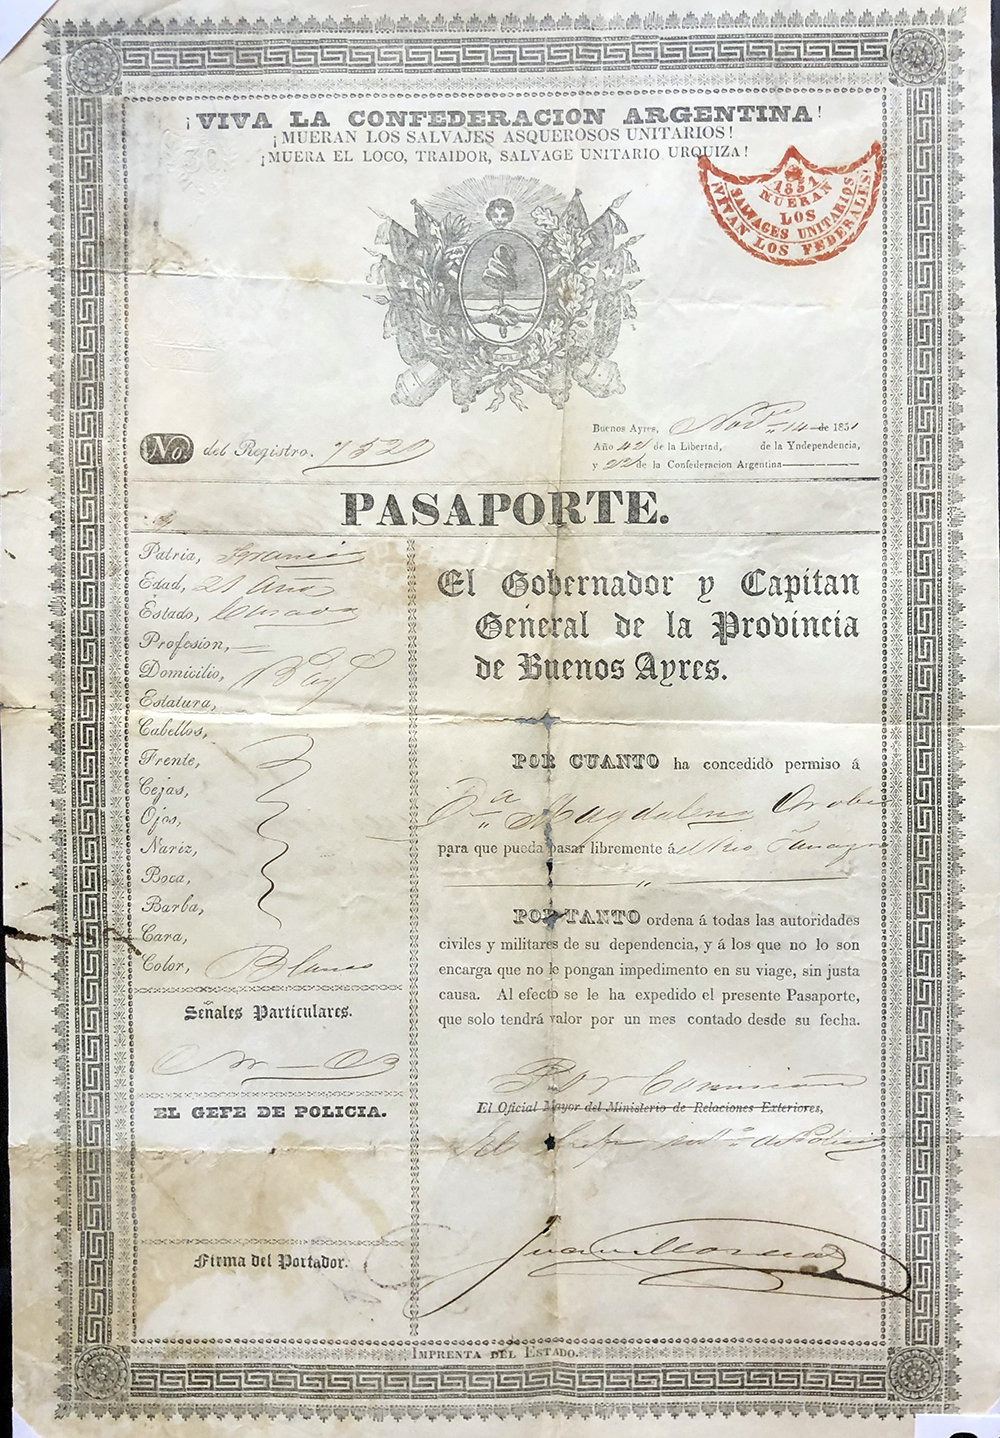 ¡VIVA LA CONFEDERACION ARGENTINA!
¡MUERAN LOS SALVAJES ASQUEROSOS UNITARIOS!
¡MUERA EL LOCO, TRAIDOR, SALVAGE UNITARIO URQUIZA!
1851
MUERAN
LOS
SALVAGES UNITARIOS
VIVAN LOS FEDERALES!
Buenos Ayres, Nov.re 14 de 1851
Año 42 de la Libertad, de la Yndependencia,
y 22 de la Confederacion Argentina
No. del Registro. 7520
PASAPORTE.
Patria, Francia
Edad, 21 Año
Estado, Casada
Profesion, —
Domicilio,
Estatura,
Cabellos,
Frente,
Cejas,
Ojos,
Nariz,
Boca,
Barba,
Cara,
Color, Blanco
Señales Particulares.
EL GEFE DE POLICIA.
Firma del Portador.
El Gobernador y Capitan
General de la Provincia
de Buenos Ayres.
POR CUANTO ha concedido permiso á
D.a Magdalena
para que pueda pasar libremente á
POR TANTO ordena á todas las autoridades
civiles y militares de su dependencia, y á los que no lo son
encarga que no le pongan impedimento en su viage, sin justa
causa. Al efecto se le ha expedido el presente Pasaporte,
que solo tendrá valor por un mes contado desde su fecha.
Por Comision
El Oficial Mayor del Ministerio de Relaciones Exteriores,
de Policia
Juan Moreno
IMPRENTA DEL ESTADO.